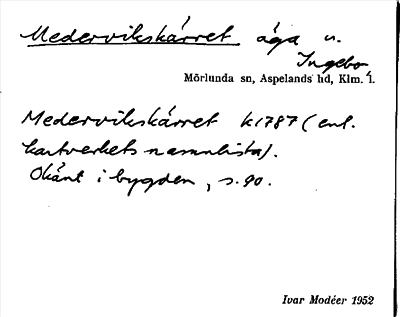 Medervikskärret äga u.
Ingebo
Mörlunda sn, Aspelands hd, Klm. l.
Medervikskärret k1787 (enl.
kartverkets namnlista).
Okänt i bygden, s. 90.
Ivar Modéer 1952